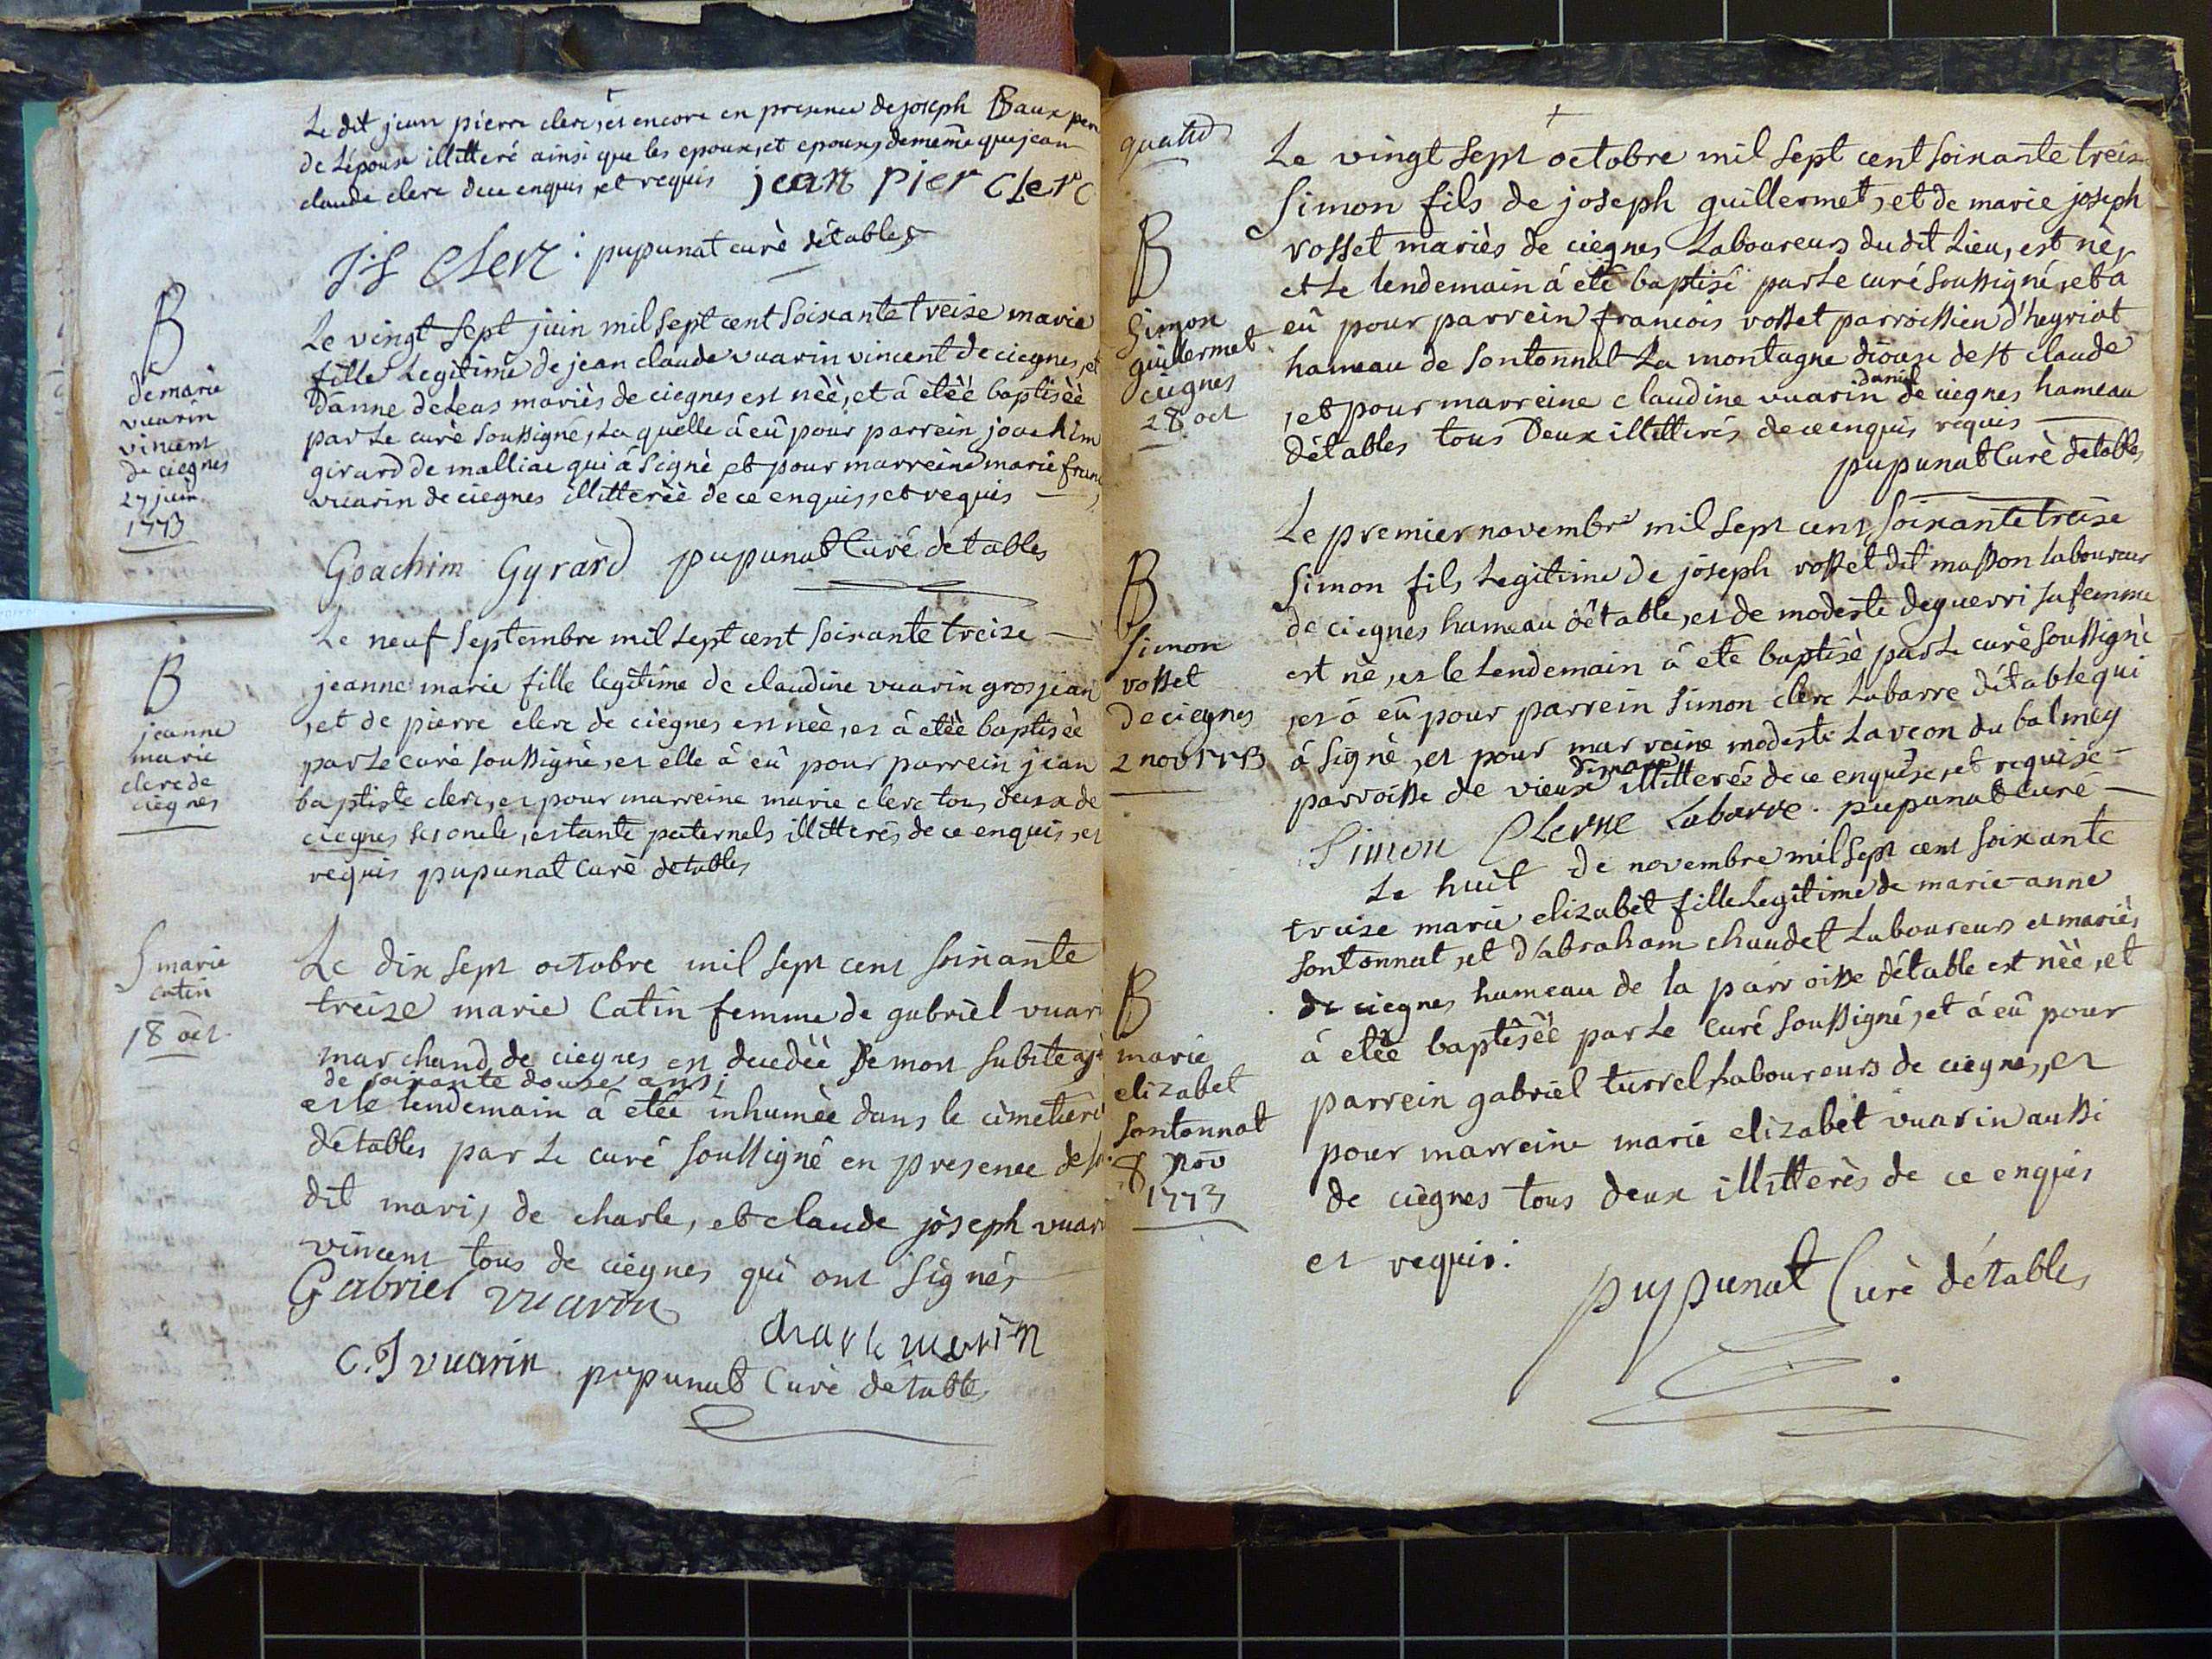 Le dit jean pierre clerc, et encore en presence de joseph Baux pere
de L'epouse illitteré ainsi que les epoux, et epouxs, de meme que jean
claude clerc de ce enquis, et requis jean pier clerc
J:f Clerz : pupunat curè détables
B
de marie
vuarin
vincent
de ciegnes
27 juin
1773
Le vingt sept juin mil sept cent soixante treize marie
fille Legitime de jean claude vuarin vincent de ciegnes, et
d'anne deleas mariès de ciegnes est nèè, et à etèè baptisèè
par Le curè soussigné, La quelle à eû pour parrein joachim
girard de malliac qui à signè et pour marreine marie franc
vuarin de ciegnes illitterèè de ce enquis, et requis
Goachim Gyrard pupunat Curé detables
B
jeanne
marie
clerc de
ciegnes
Le neuf septembre mil sept cent soixante treize
jeanne marie fille legitime de claudine vuarin grosjean
, et de pierre clerc de ciègnes est nèè, et à etèè baptisèè
par Le curé soussignè, et elle à eû pour parrein jean
baptiste clerc, et pour marreine marie clerc tous deux de
ciegnes ses oncle, et tante paternels illitterès de ce enquis, et
requis pupunat Curè detables
S marie
catin
18 oct.
Le dix sept octobre mil sept cent soixante
treize marie Catin femme de gabriel vuari
marchand de ciegnes est decedèè De mort subite agè
de soixante douze ans;
et le lendemain à etèe inhumèe dans le cimetierè
détables par Le curé soussigné en presence de so
dit mari, de charle, et claude joseph vuari
vincent tous de ciegnes qui ont signés
Gabriel vuarin
charle vuarin
C.J vuarin pupunat Curè détable
quatre
B
Simon
guillermet
ciegnes
28 oct
Le vingt sept octobre mil sept cent soixante treize
Simon fils de joseph guillermet, et de marie joseph
vosset mariès de ciegnes Laboureurs du dit Lieu, est nè,
et Le lendemain à etè baptisé par Le curé soussigné, et a
eû pour parrein francois vosset parroissien d'heyriat
hameau de sontonnat La montagne diouse de st claude
, et pour marreine claudine vuarin daniel de ciegnes hameau
détables tous Deux illitterés de ce enquis requis
pupunat Curè detables
B
Simon
vosset
de ciegnes
2 nov 1773
Le premier novembre mil sept cent soixante treize
Simon fils Legitime de joseph vosset dit masson laboureur
de ciegnes hameau détable, et de modeste deguerri sa femme
est nè, et le lendemain à etè baptisè par Le curè soussignè
, et à eû pour parrein simon clerc Labarre détable qui
à signè, et pour marreine modeste Lavcon du balmey
parroisse de vieux illitterée de ce enquise, et requise
Simon Clerc Labarre. pupunat curé
B
marie
elizabet
Sontonnat
8 nov
1773
Le huit de novembre mil sept cent soixante
treize marie elizabet fille Legitime de marie-anne
sontonnat, et D'abraham chaudet Laboureurs et mariés
de ciegnes hameau de la parroisse détable est nèè, et
à etèè baptisèè par Le curé soussigné, et à eû pour
parrein gabriel turrel Laboureurs de ciegnes, et
pour marreine marie elizabet vuarin aussi
de ciègnes tous deux illitterès de ce enquis
et requis.
pupunat Curè détables